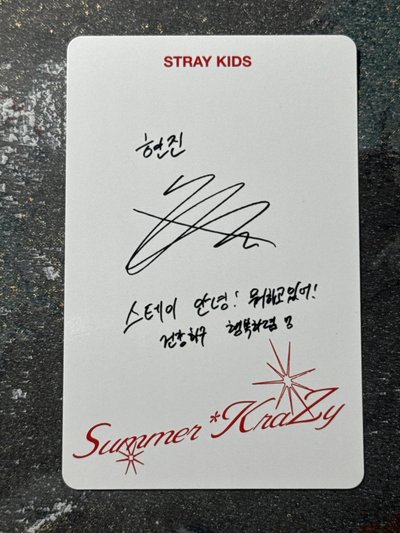 STRAY KIDS
현진
스테이 안녕! 뭐하고있어!
건강하구 행복하렴
Summer*KraZy